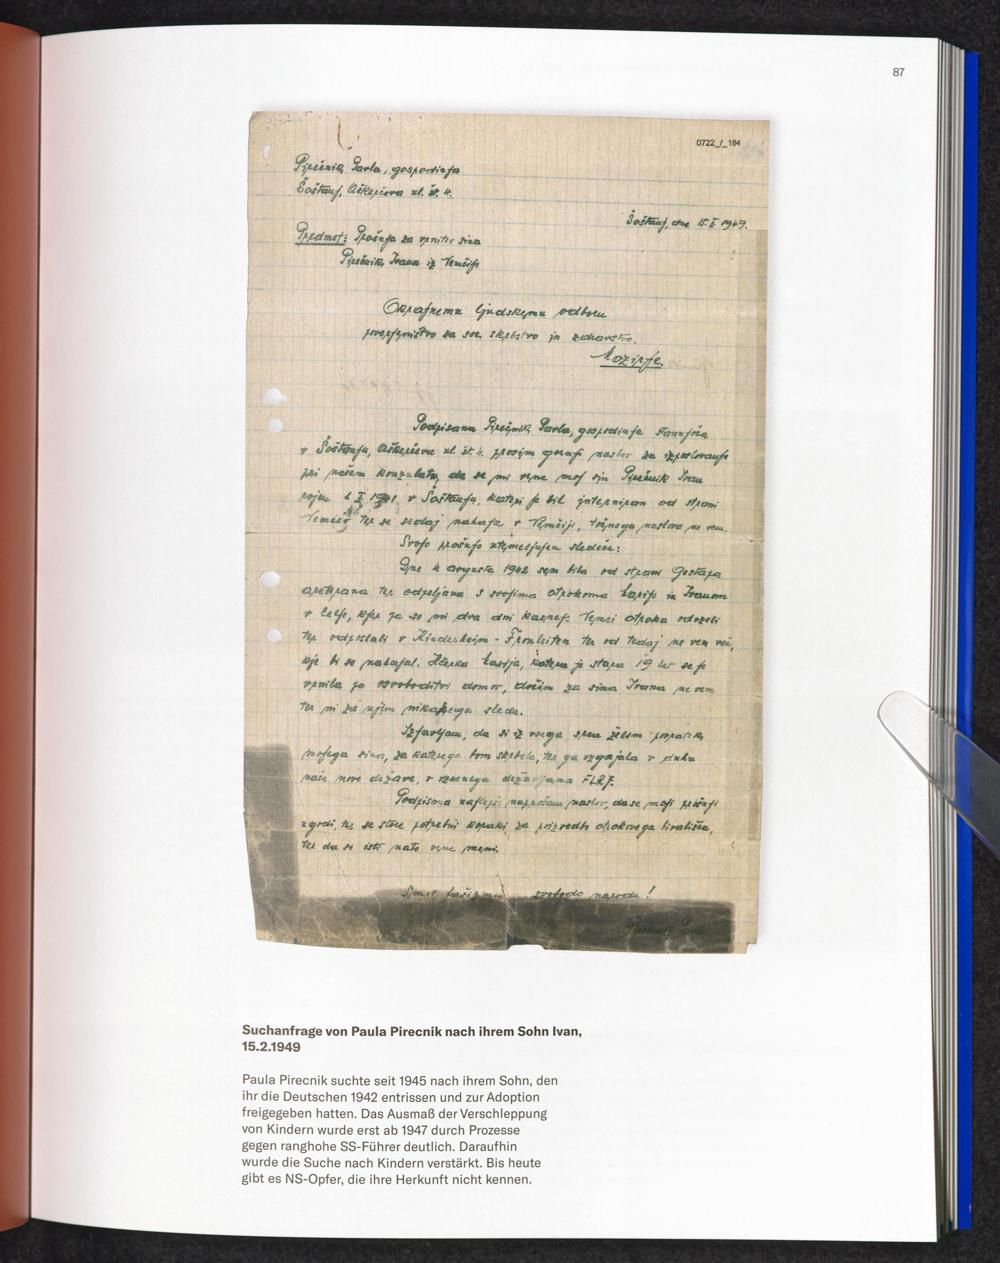 87
0722_/_184
Pirečnik Pavla, gospodinja
Šoštanj, Aškerčeva ul. št. 4.
Šoštanj, dne 15. 1949.
Predmet: Prošnja za vrnitev sina
Pirečnik Ivana iz Nemčije
Okrajnemu ljudskemu odboru
poverjeništvo za soc skrbstvo in zdravstvo.
Mozirje.
Podpisana Pirečnik Pavla, gospodinja stanujoča
v Šoštanju, Aškerčeva ul. št. 4. prosim gornji naslov za izposlovanje
pri našem konzulatu, da se mi vrne moj sin Pirečnik Ivan
rojen 1941 v Šoštanju, kateri je bil interniran od strani
Nemcev ter se sedaj nahaja v Nemčiji, točnega naslova ne vem.
Svojo prošnjo utemeljujem sledeče:
Dne 4 avgusta 1942 sem bila od strani Gestapa
aretirana ter odpeljana s svojima otrokoma in Ivanom
v Celje, kjer pa so mi dva dni kasneje Nemci otroka odvzeli
ter odposlali v Kinderheim - Fronleiten ter od tedaj ne vem več,
kje bi se nahajal. Hčerka katera je stara 19 let se je
vrnila po osvoboditvi domov, dočim za sina Ivana ne vem
ter ni za njim nikakega sledu.
Izjavljam, da si iz vsega srca želim povratka
mojega sina, za katerega bom skrbela, ter ga vzgajala v duhu
naše nove države, v vzornega državljana FLRJ.
Podpisana najlepše naprošam naslov, da se moji prošnji
ugodi, ter se store potrebni koraki za poizvedbo otrokovega bivališča,
ter da se isti nato vrne meni.
Smrt fašizmu svobodo narodu!
Suchanfrage von Paula Pirecnik nach ihrem Sohn Ivan,
15.2.1949
Paula Pirecnik suchte seit 1945 nach ihrem Sohn, den
ihr die Deutschen 1942 entrissen und zur Adoption
freigegeben hatten. Das Ausmaß der Verschleppung
von Kindern wurde erst ab 1947 durch Prozesse
gegen ranghohe SS-Führer deutlich. Daraufhin
wurde die Suche nach Kindern verstärkt. Bis heute
gibt es NS-Opfer, die ihre Herkunft nicht kennen.